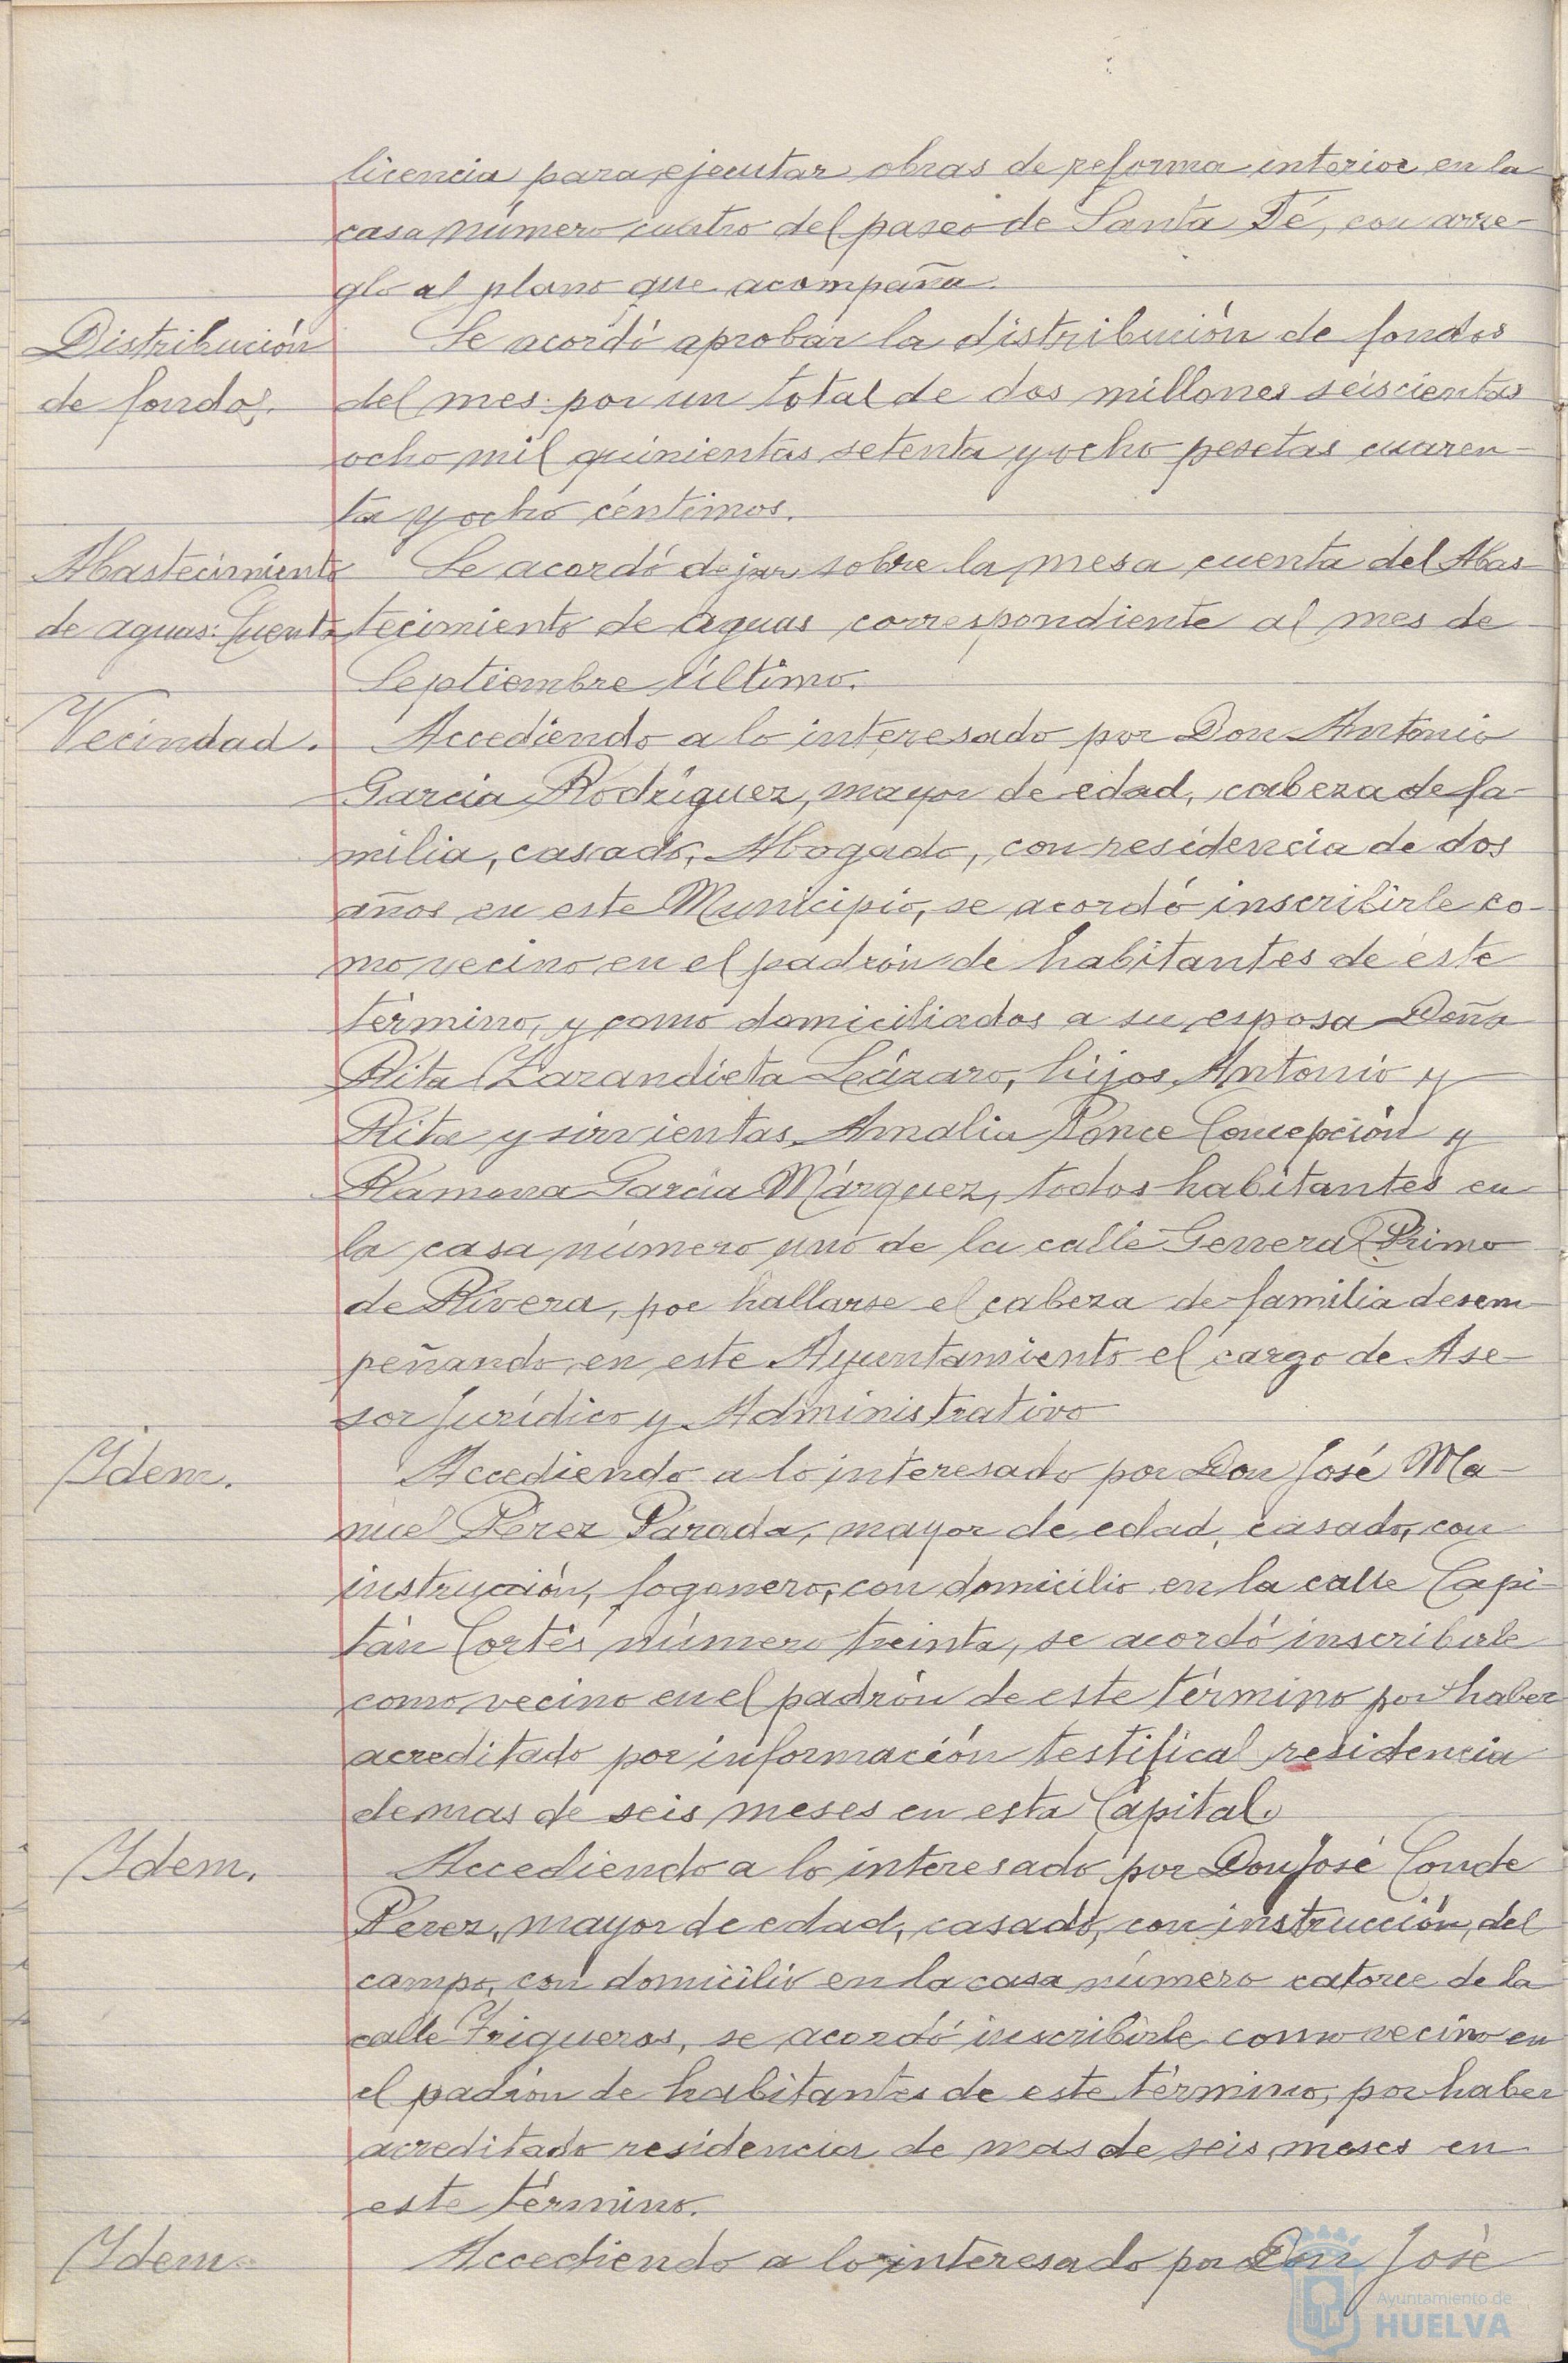 licencia para ejecutar obras de reforma interior en la
casa número cuatro del paseo de Santa Fé, con arre-
glo al plano que acompaña.
Distribución
de fondos.
Se acordó aprobar la distribución de fondos
del mes por un total de dos millones seiscientas
ocho mil quinientas setenta y ocho pesetas cuaren-
ta y ocho céntimos.
Abastecimiento
de aguas: Cuenta
Se acordó dejar sobre la mesa cuenta del Abas-
tecimiento de aguas correspondiente al mes de
Septiembre último.
Vecindad.
Accediendo a lo interesado por Don Antonio
García Rodríguez, mayor de edad, cabeza de fa-
milia, casado, Abogado, con residencia de dos
años en este Municipio, se acordó inscribirle co-
mo vecino en el padrón de habitantes de este
término, y como domiciliados a su esposa Doña
Rita Zarandieta Leázaro, hijos Antonio y
Rita y sirvientas Amalia Ponce Concepción y
Ramona García Márquez, todos habitantes en
la casa número uno de la calle General Primo
de Rivera, por hallarse el cabeza de familia desem
peñando en este Ayuntamiento el cargo de Ase-
sor Jurídico y Administrativo
Idem.
Accediendo a lo interesado por Don José Ma-
nuel Pérez Parada, mayor de edad, casado, con
instrucción, fogonero, con domicilio en la calle Capi-
tán Cortés número treinta, se acordó inscribirle
como vecino en el padrón de este término por haber
acreditado por información testifical residencia
de mas de seis meses en esta Capital.
Idem.
Accediendo a lo interesado por Don José Conde
Perez, mayor de edad, casado, con instrucción, del
campo, con domicilio en la casa número catorce de la
calle Trigueros, se acordó inscribirle como vecino en
el padrón de habitantes de este término, por haber
acreditado residencia de mas de seis meses en
este término.
Idem.
Accediendo a lo interesado por Don José
Ayuntamiento de
HUELVA